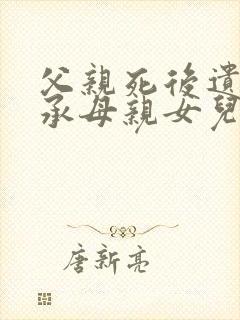 父親死後遺
承母親女兒
唐新亮